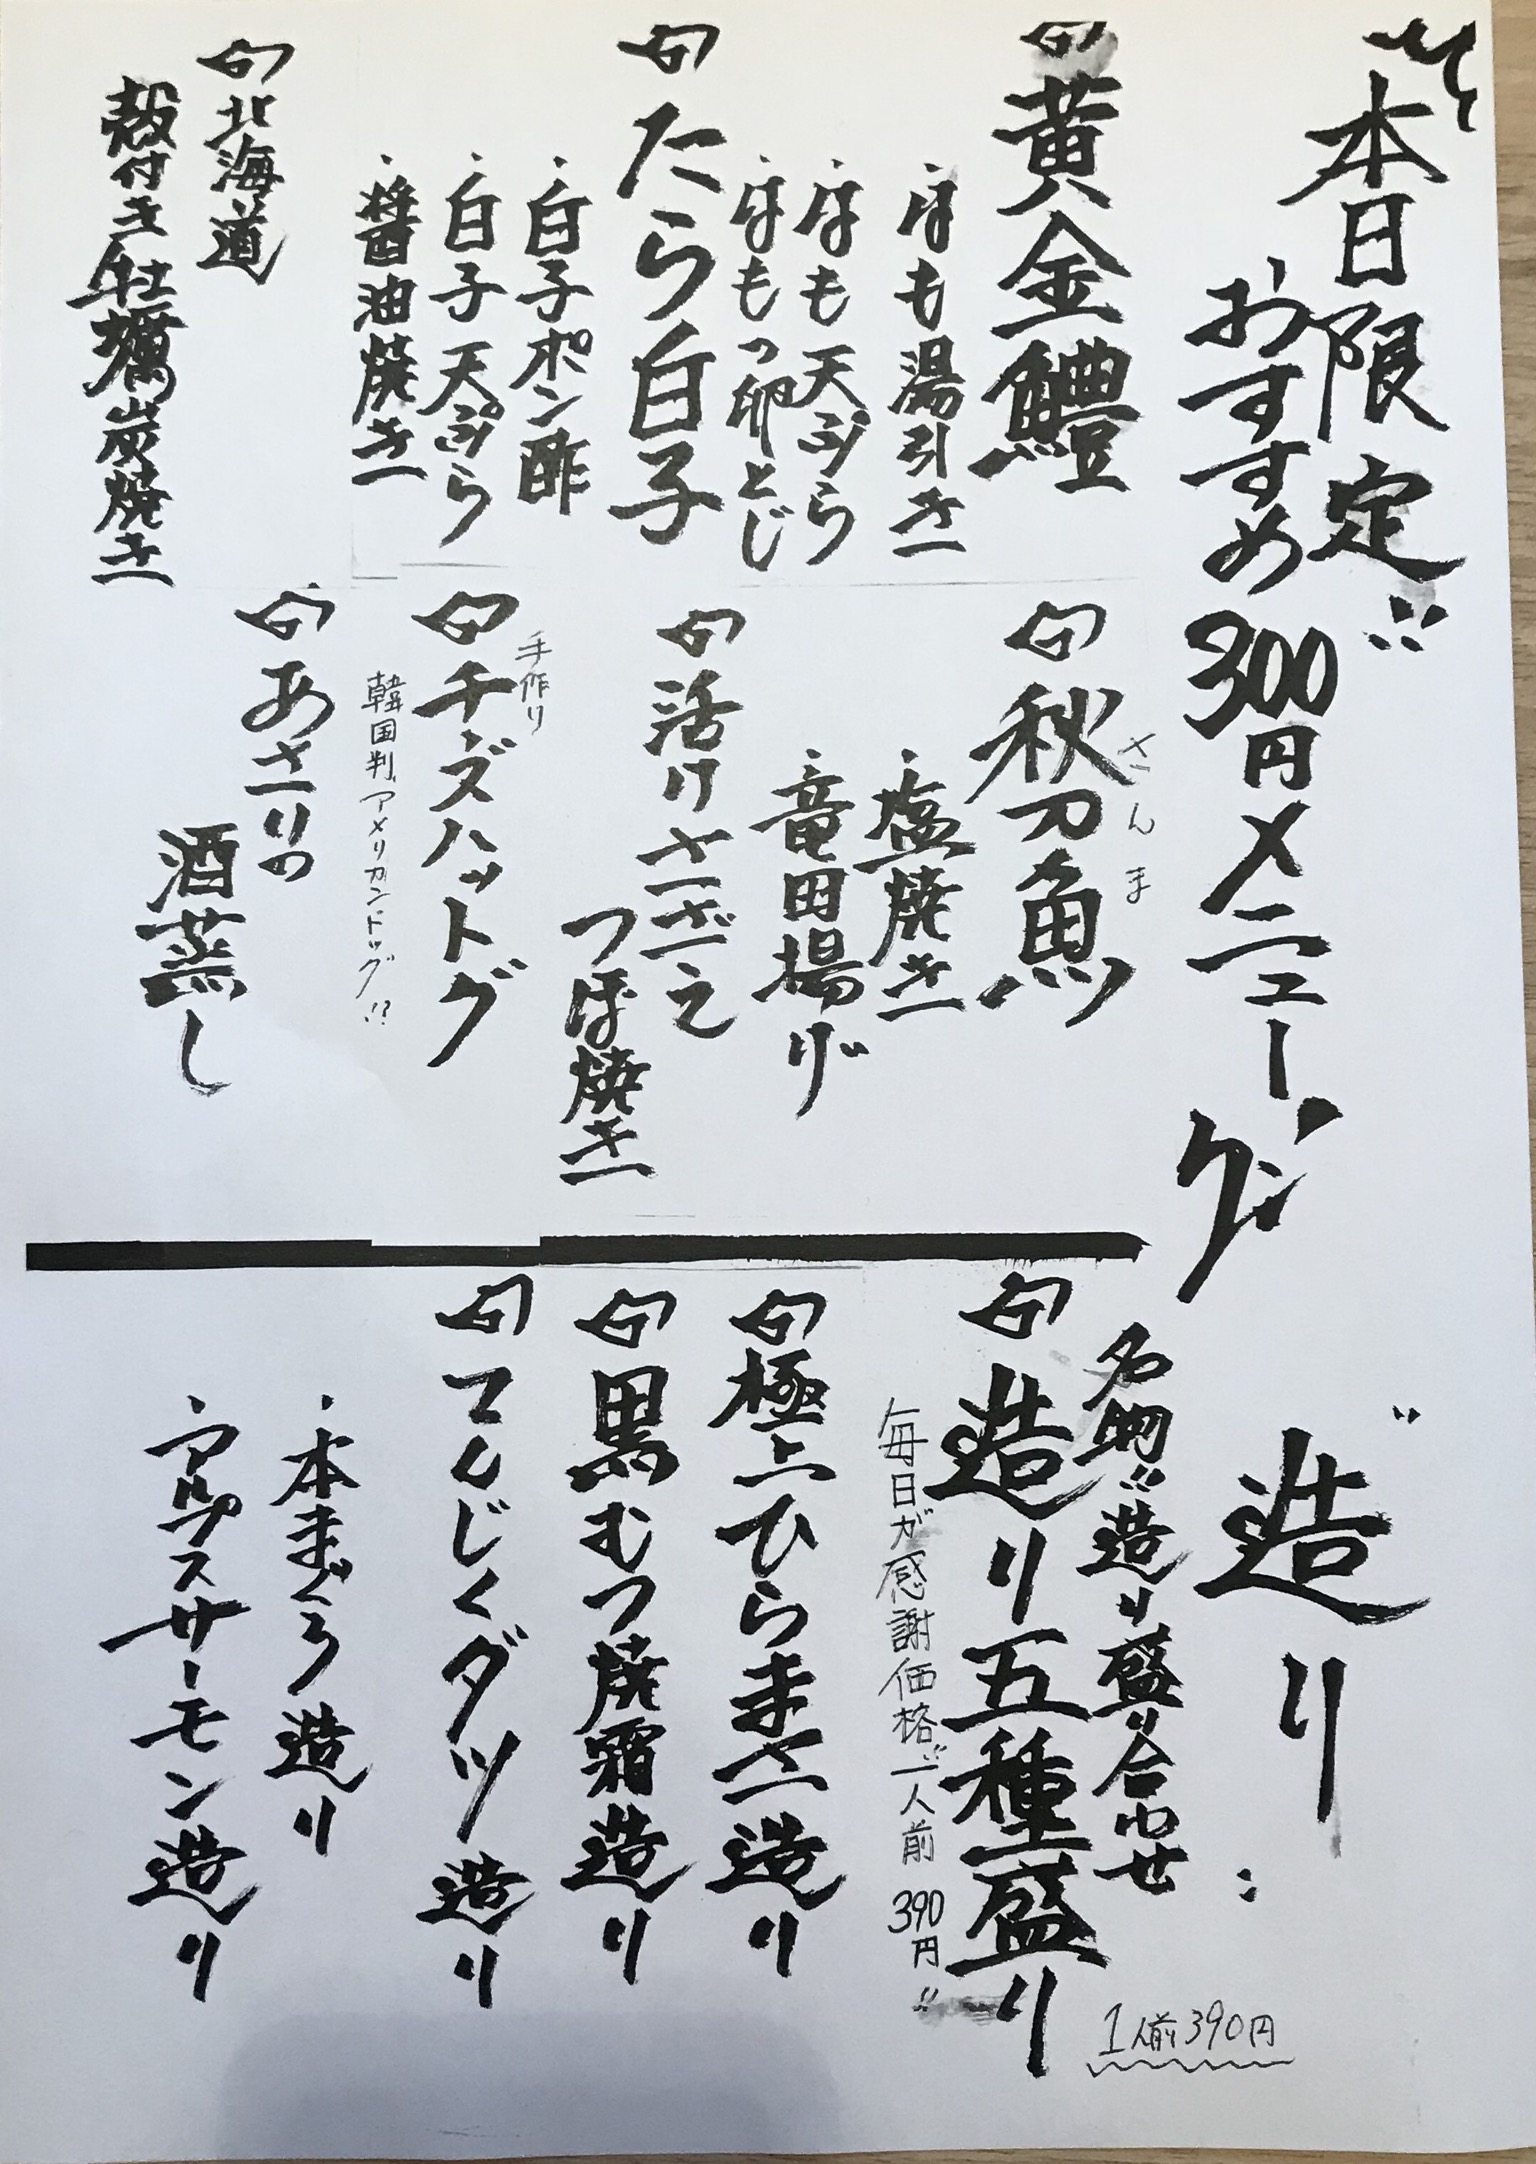 本日限定!!
おすすめ300円メニュー
黄金鱧
・はも湯引き
・はも天ぷら
・はもつ卵とじ
たら白子
・白子ポン酢
・白子天ぷら
・醤油焼き
北海道
殻付き牡蠣炭焼き
秋刀魚
さんま
・塩焼き
・竜田揚げ
活けさざえ
つぼ焼き
手作り
チーズハットグ
韓国判、アメリカンドッグ!?
あさりの
酒蒸し
造り
名物!!造り盛り合わせ
1人前390円
造り五種盛り
毎日が感謝価格!!一人前390円!!
極上ひらまさ造り
黒むつ焼霜造り
てんじくダツ造り
・本まぐろ造り
・アルプスサーモン造り